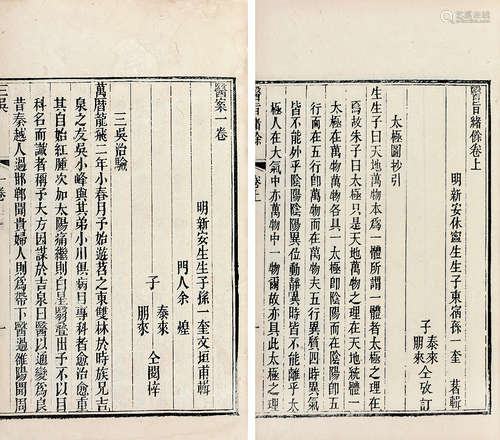 醫旨緒餘卷上
明新安休寧生生子東宿孫一奎 著輯
子 泰來 朋來 仝攷訂
太極圖抄引
生生子曰天地萬物本爲一體所謂一體者太極之理在
焉故朱子曰太極只是天地萬物之理在天地統體一
太極在萬物萬物各具一太極即陰陽而在陰陽五
行而在五行即萬物而在萬物夫五行異質四時異氣
皆不能外乎陰陽陰陽異位動靜異時皆不能離乎太
極人在大氣中亦萬物中一物爾故亦具此太極之理
醫旨緒餘 卷上 一
醫案一卷
明新安生生子孫一奎文垣甫輯
門人余 煌
子 泰來 朋來 仝閱梓
三吳治驗
萬曆龍飛二年小春月予始遊苕之東雙林於時族兄吉
泉之友吳小峰與其弟小川俱病目專科者愈治愈重
其自始紅腫次加太陽痛繼則白星翳疊出予不以目
科名而識者稱予大方因謀於吉泉曰醫以通變爲良
昔秦越人過邯鄲聞貴婦人則爲帶下醫過雒陽聞周
三吳 一卷 一